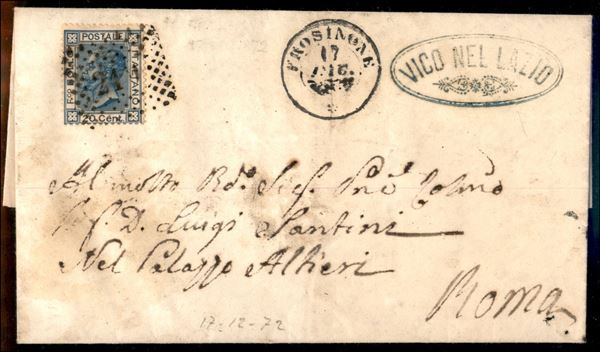 POSTALE
20 Cent.
FROSINONE
17
VICO NEL LAZIO
Al molto Rdo. Sig. Pne Colmo
D. Luigi Santini
Nel Palazzo Altieri
Roma
17-12-72